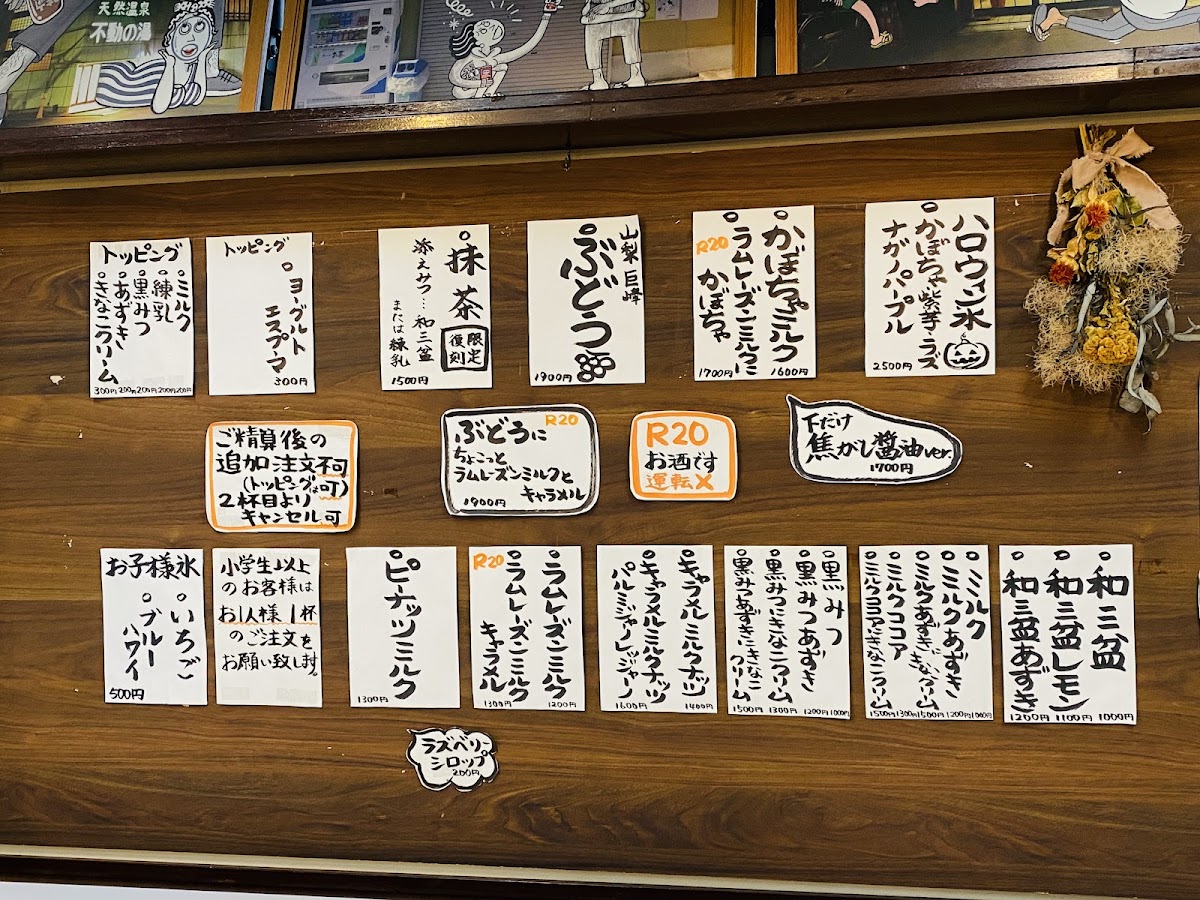 天然温泉
不動の湯
ハロウィン氷
かぼちゃ紫芋・ラズ
ナガノパープル
2500円
かぼちゃミルク
1600円
R20
ラムレーズンミルクに
かぼちゃ
1700円
山梨巨峰
ぶどう
1900円
抹茶
限定
復刻
添えみつ…和三盆
または練乳
1500円
トッピング
ヨーグルト
エスプーマ
300円
トッピング
ミルク
練乳
黒みつ
あずき
きなこクリーム
300円 200円 200円 200円 200円
ご精算後の
追加注文不可
(トッピングは可)
2杯目より
キャンセル可
R20
ぶどうに
ちょこっと
ラムレーズンミルクと
キャラメル
1900円
R20
お酒です
運転X
下だけ
焦がし醤油ver.
1700円
和三盆
和三盆レモン
和三盆あずき
1200円 1100円 1000円
ミルク
ミルクあずき
ミルクあずききなこクリーム
ミルクココア
ミルクココアにきなこクリーム
1500円 1300円 1500円 1200円 1000円
黒みつ
黒みつあずき
黒みつにきなこクリーム
黒みつあずきにきなこ
クリーム
1500円 1300円 1200円 1000円
キャラメルミルクナッツ
キャラメルミルクナッツ
パルミジャーノレッジャーノ
1600円 1400円
R20
ラムレーズンミルク
ラムレーズンミルク
キャラメル
1300円 1200円
ピーナッツミルク
1300円
小学生以上
のお客様は
お1人様1杯
のご注文を
お願い致します。
お子様氷
いちご
ブルー
ハワイ
500円
ラズベリー
シロップ
200円